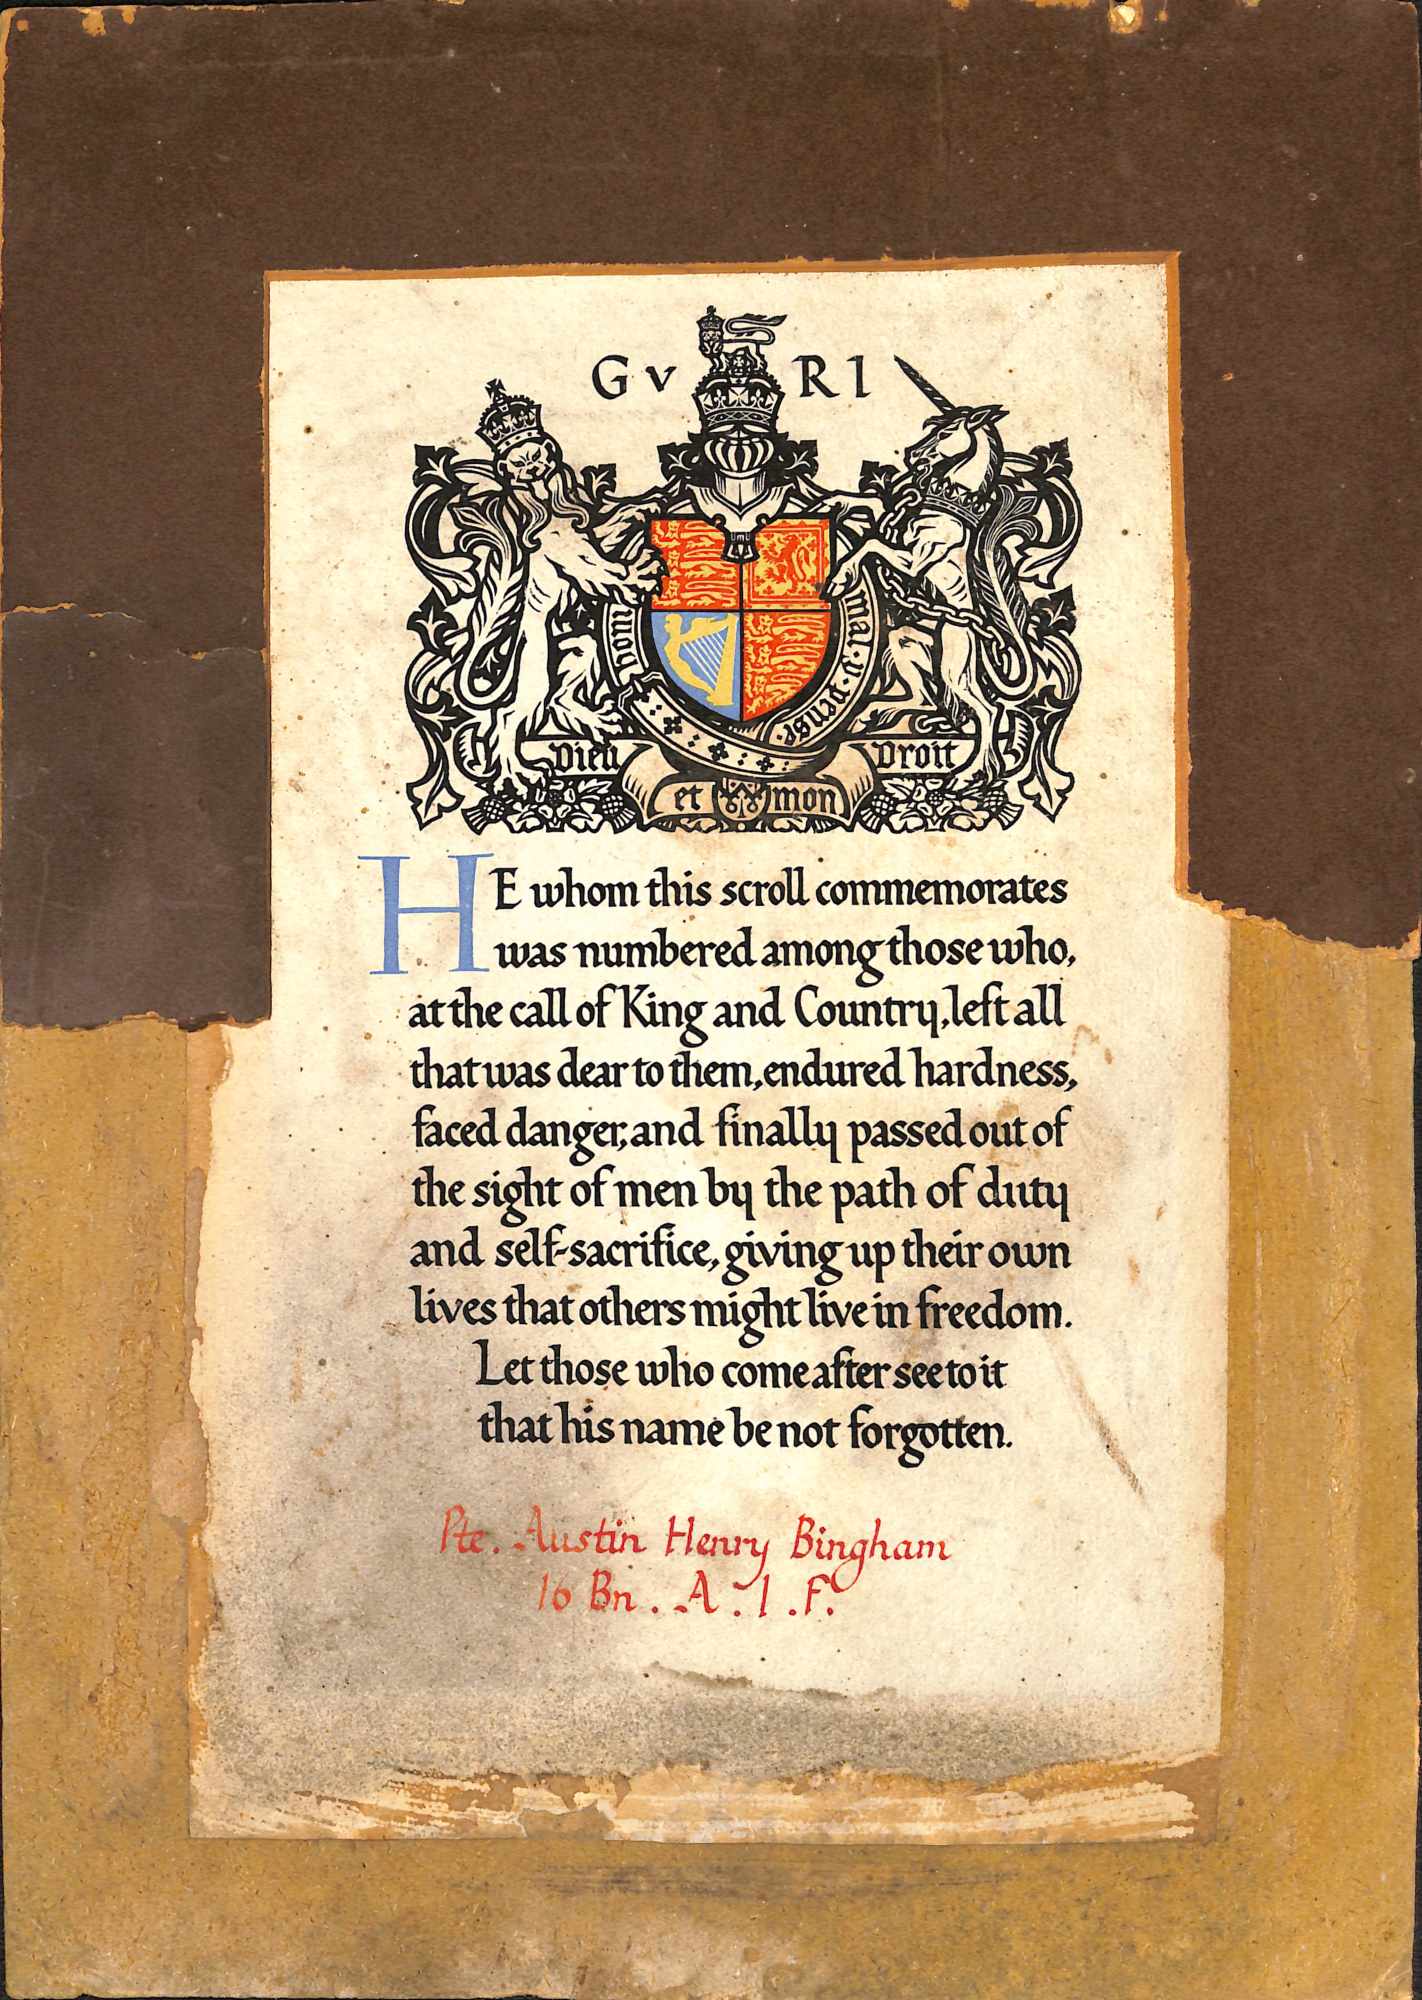 GV RI
honi
mal · y · pense ·
Dieu
Droit
et mon
HE whom this scroll commemorates
was numbered among those who,
at the call of King and Country, left all
that was dear to them, endured hardness,
faced danger, and finally passed out of
the sight of men by the path of duty
and self-sacrifice, giving up their own
lives that others might live in freedom.
Let those who come after see to it
that his name be not forgotten.
Pte. Austin Henry Bingham
16 Bn. A.I.F.